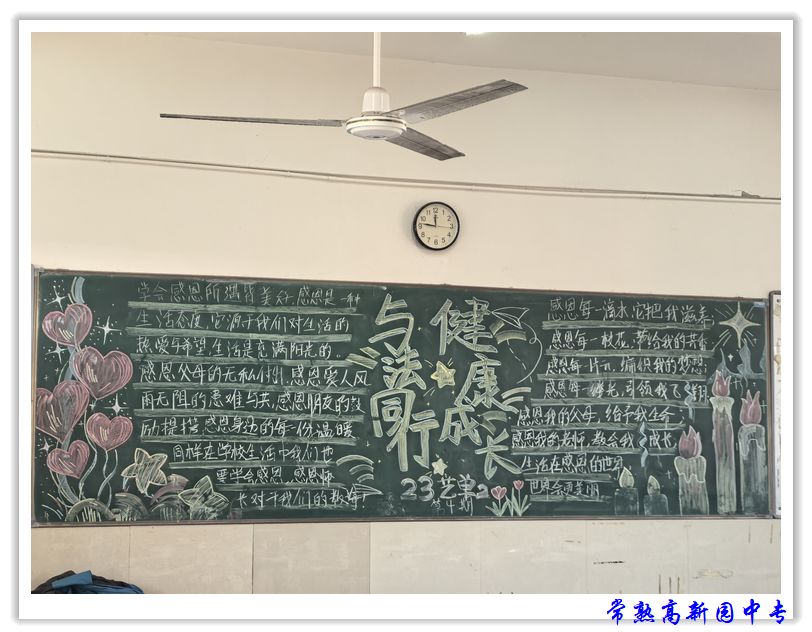 学会感恩所遇皆美好,感恩是一种
生活态度,它源于我们对生活的
热爱与希望,生活是充满阳光的,
感恩父母的无私付出,感恩爱人风
雨无阻的患难与共,感恩朋友的鼓
励提携,感恩身边的每一份温暖
同样在学校生活中我们也
要学会感恩,感恩师
长对于我们的教诲
与法同行
健康成长
23艺电2
第4期
感恩每一滴水,它把我滋养
感恩每一枝花,带给我的芬香
感恩每一片云,编织我的梦想
感恩每一缕光,引领我飞翔
感恩我的父母,给予我生命
感恩我的老师,教会我成长
生活在感恩的世界
世界会更美丽
12
11
10
9
8
7
6
5
4
3
2
1
常熟高新园中专